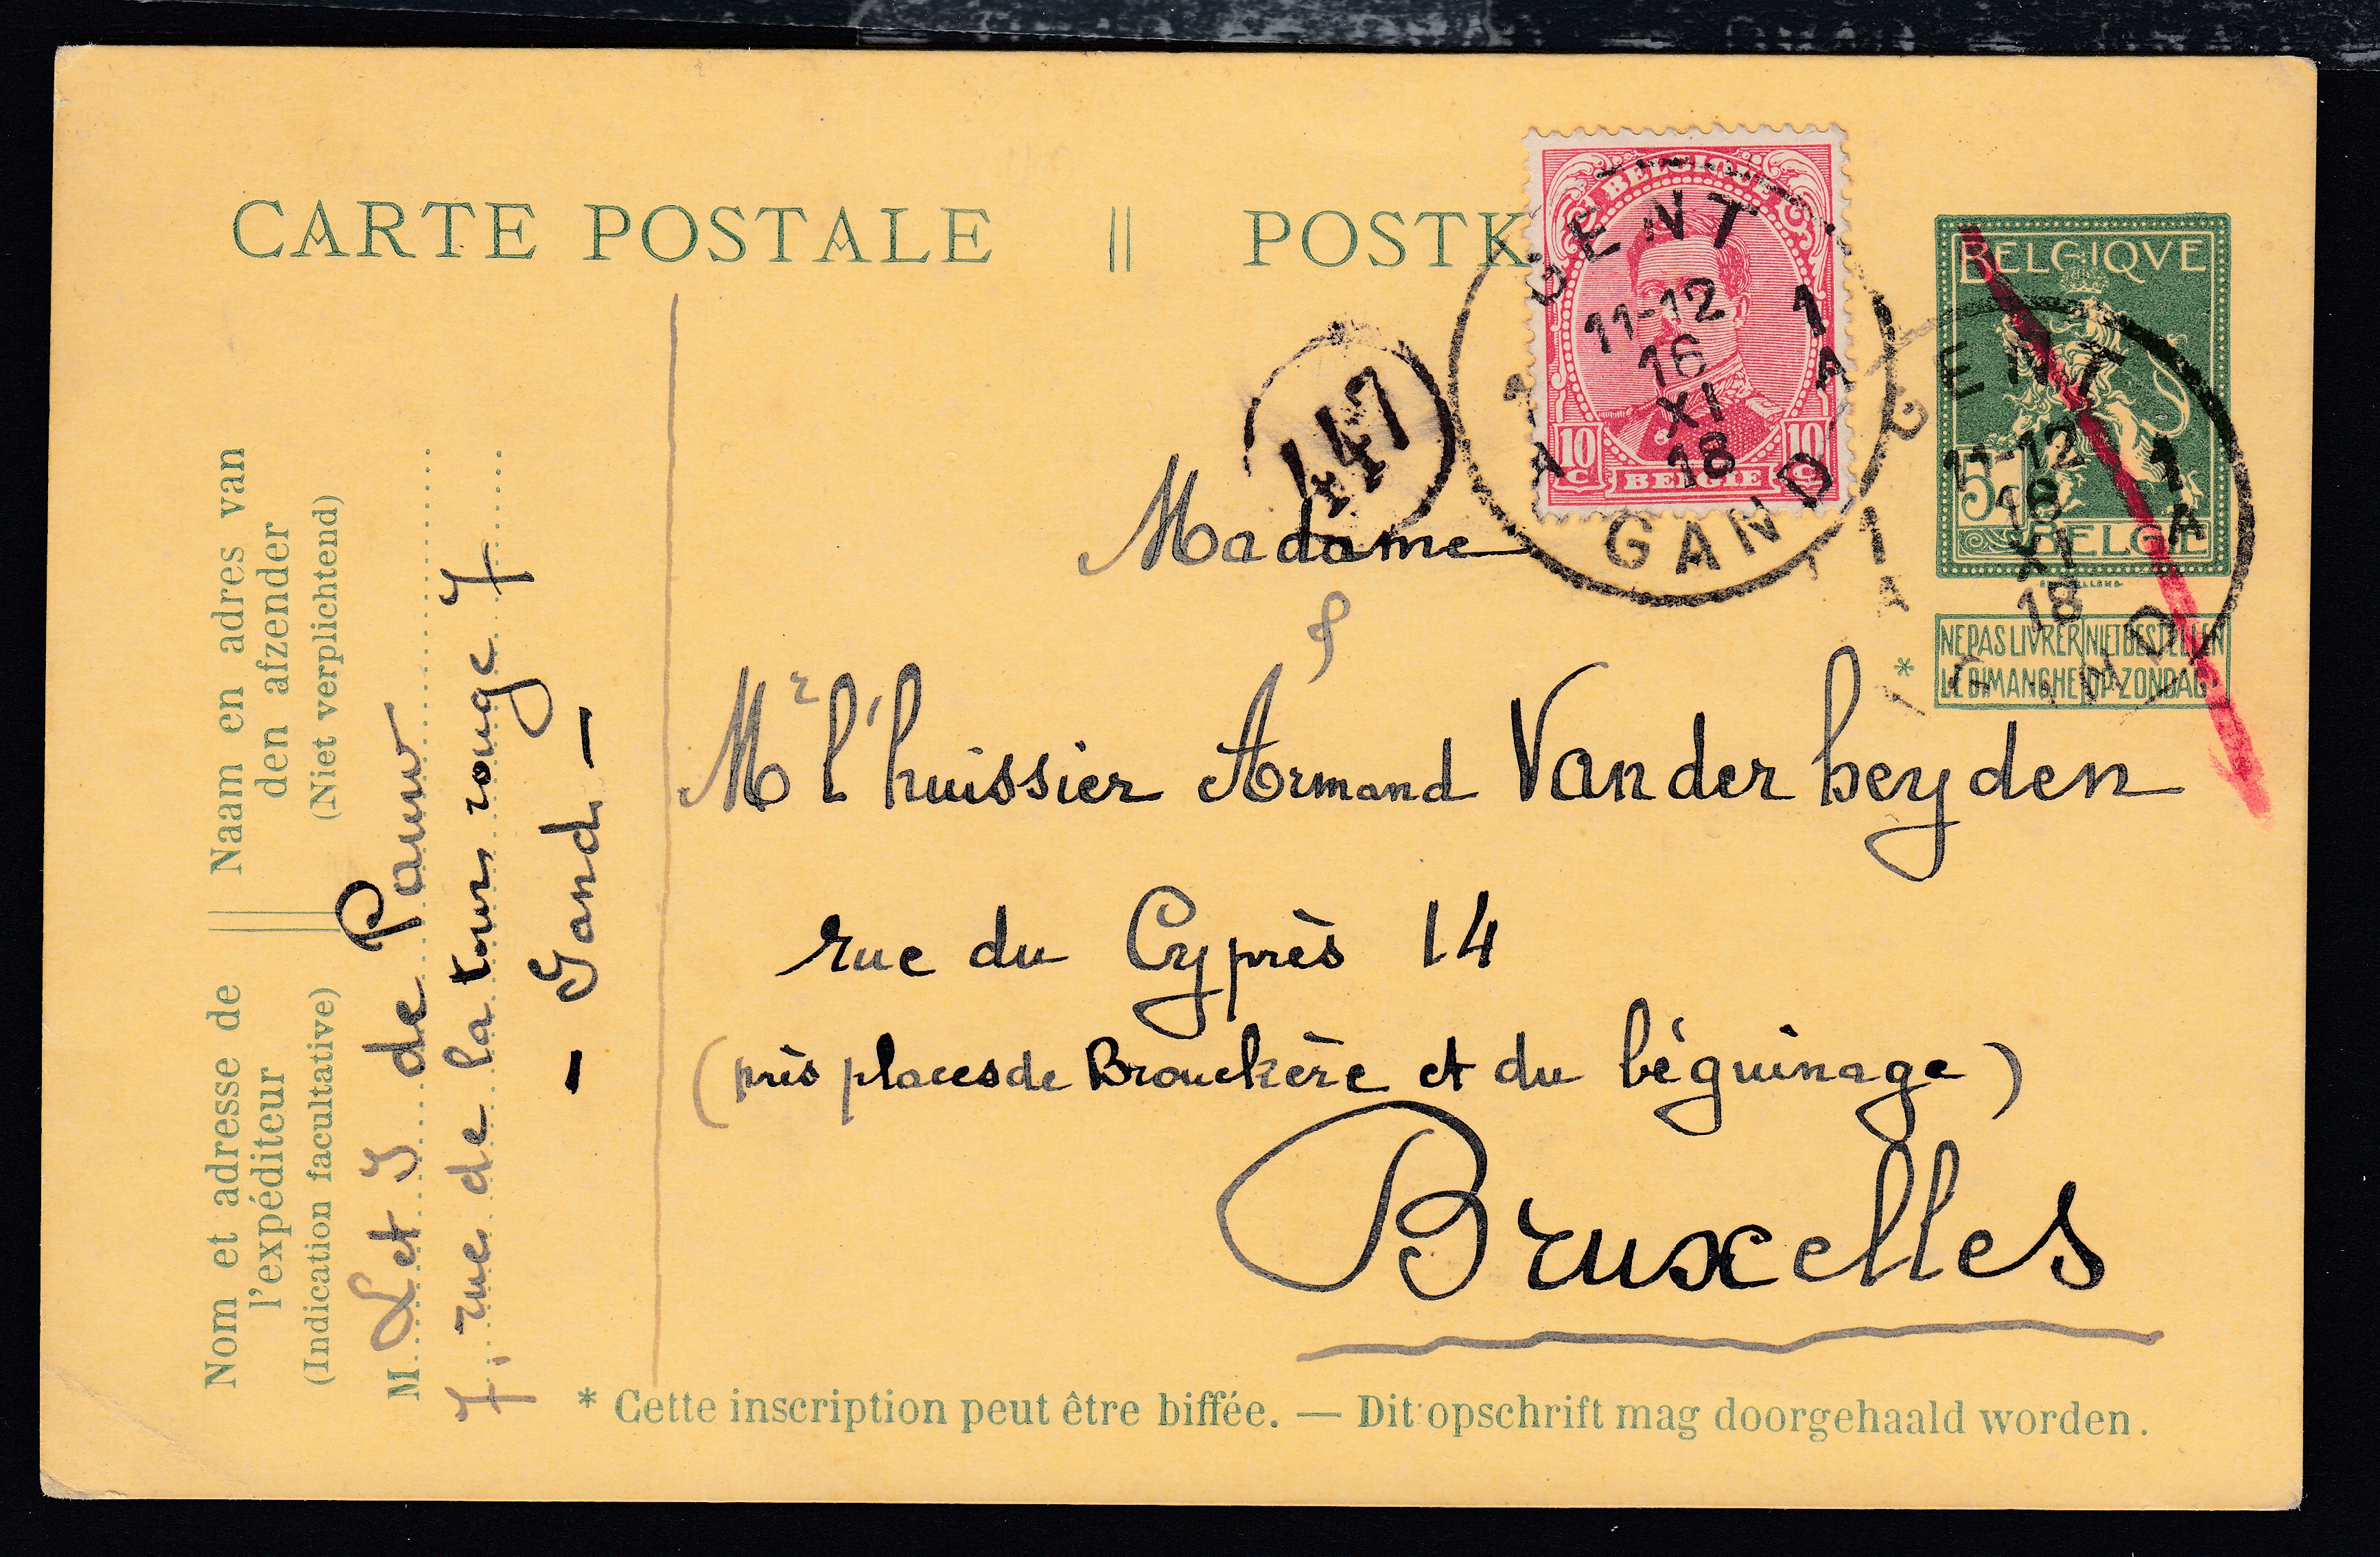 CARTE POSTALE || POSTK
BELGIQUE
10 C 10 C
BELGIË
GENT
1 A 1 A
11-12
16
XI
18
GAND
BELGIQVE
5
BELGIË
GENT
1 A 1 A
11-12
16
XI
18
NE PAS LIVRER LE DIMANCHE
NIET BESTELLEN OP ZONDAG
*
447
Madame
&
Mr l'huissier Armand Vanderheyden
rue du Cyprès 14
(près places de Brouckère et du béguinage)
Bruxelles
Nom et adresse de l'expéditeur
(Indication facultative)
Naam en adres van den afzender
(Niet verplichtend)
M. L et J de Pauw
7. rue de la tour rouge 7
- Gand -
* Cette inscription peut être biffée. — Dit opschrift mag doorgehaald worden.